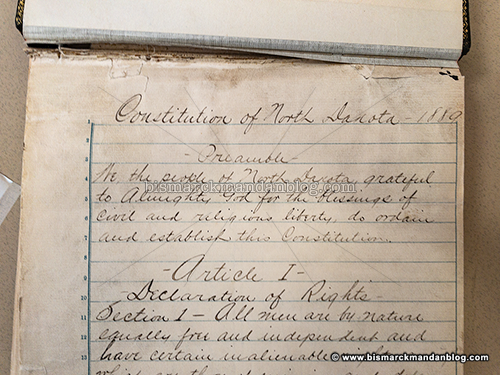 Constitution of North Dakota - 1889
- Preamble -
We the people of North Dakota, grateful
to Almighty God for the blessings of
civil and religious liberty, do ordain
and establish this Constitution.
- Article I -
- Declaration of Rights -
Section 1 - All men are by nature
equally free and independent and
have certain inalienable
1
2
3
4
5
6
7
8
9
10
11
12
13
bismarckmandanblog.com
www.bismarckmandanblog.com